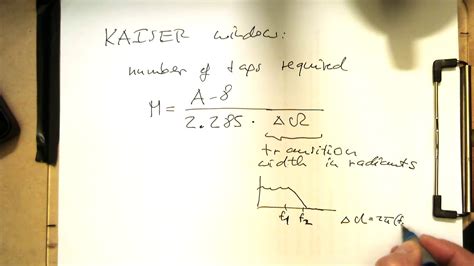 KAISER window:
number of taps required
M = A-8 / 2.285 · ΔΩ
transition
width in radiants
f1 f2 ΔΩ=2π(f